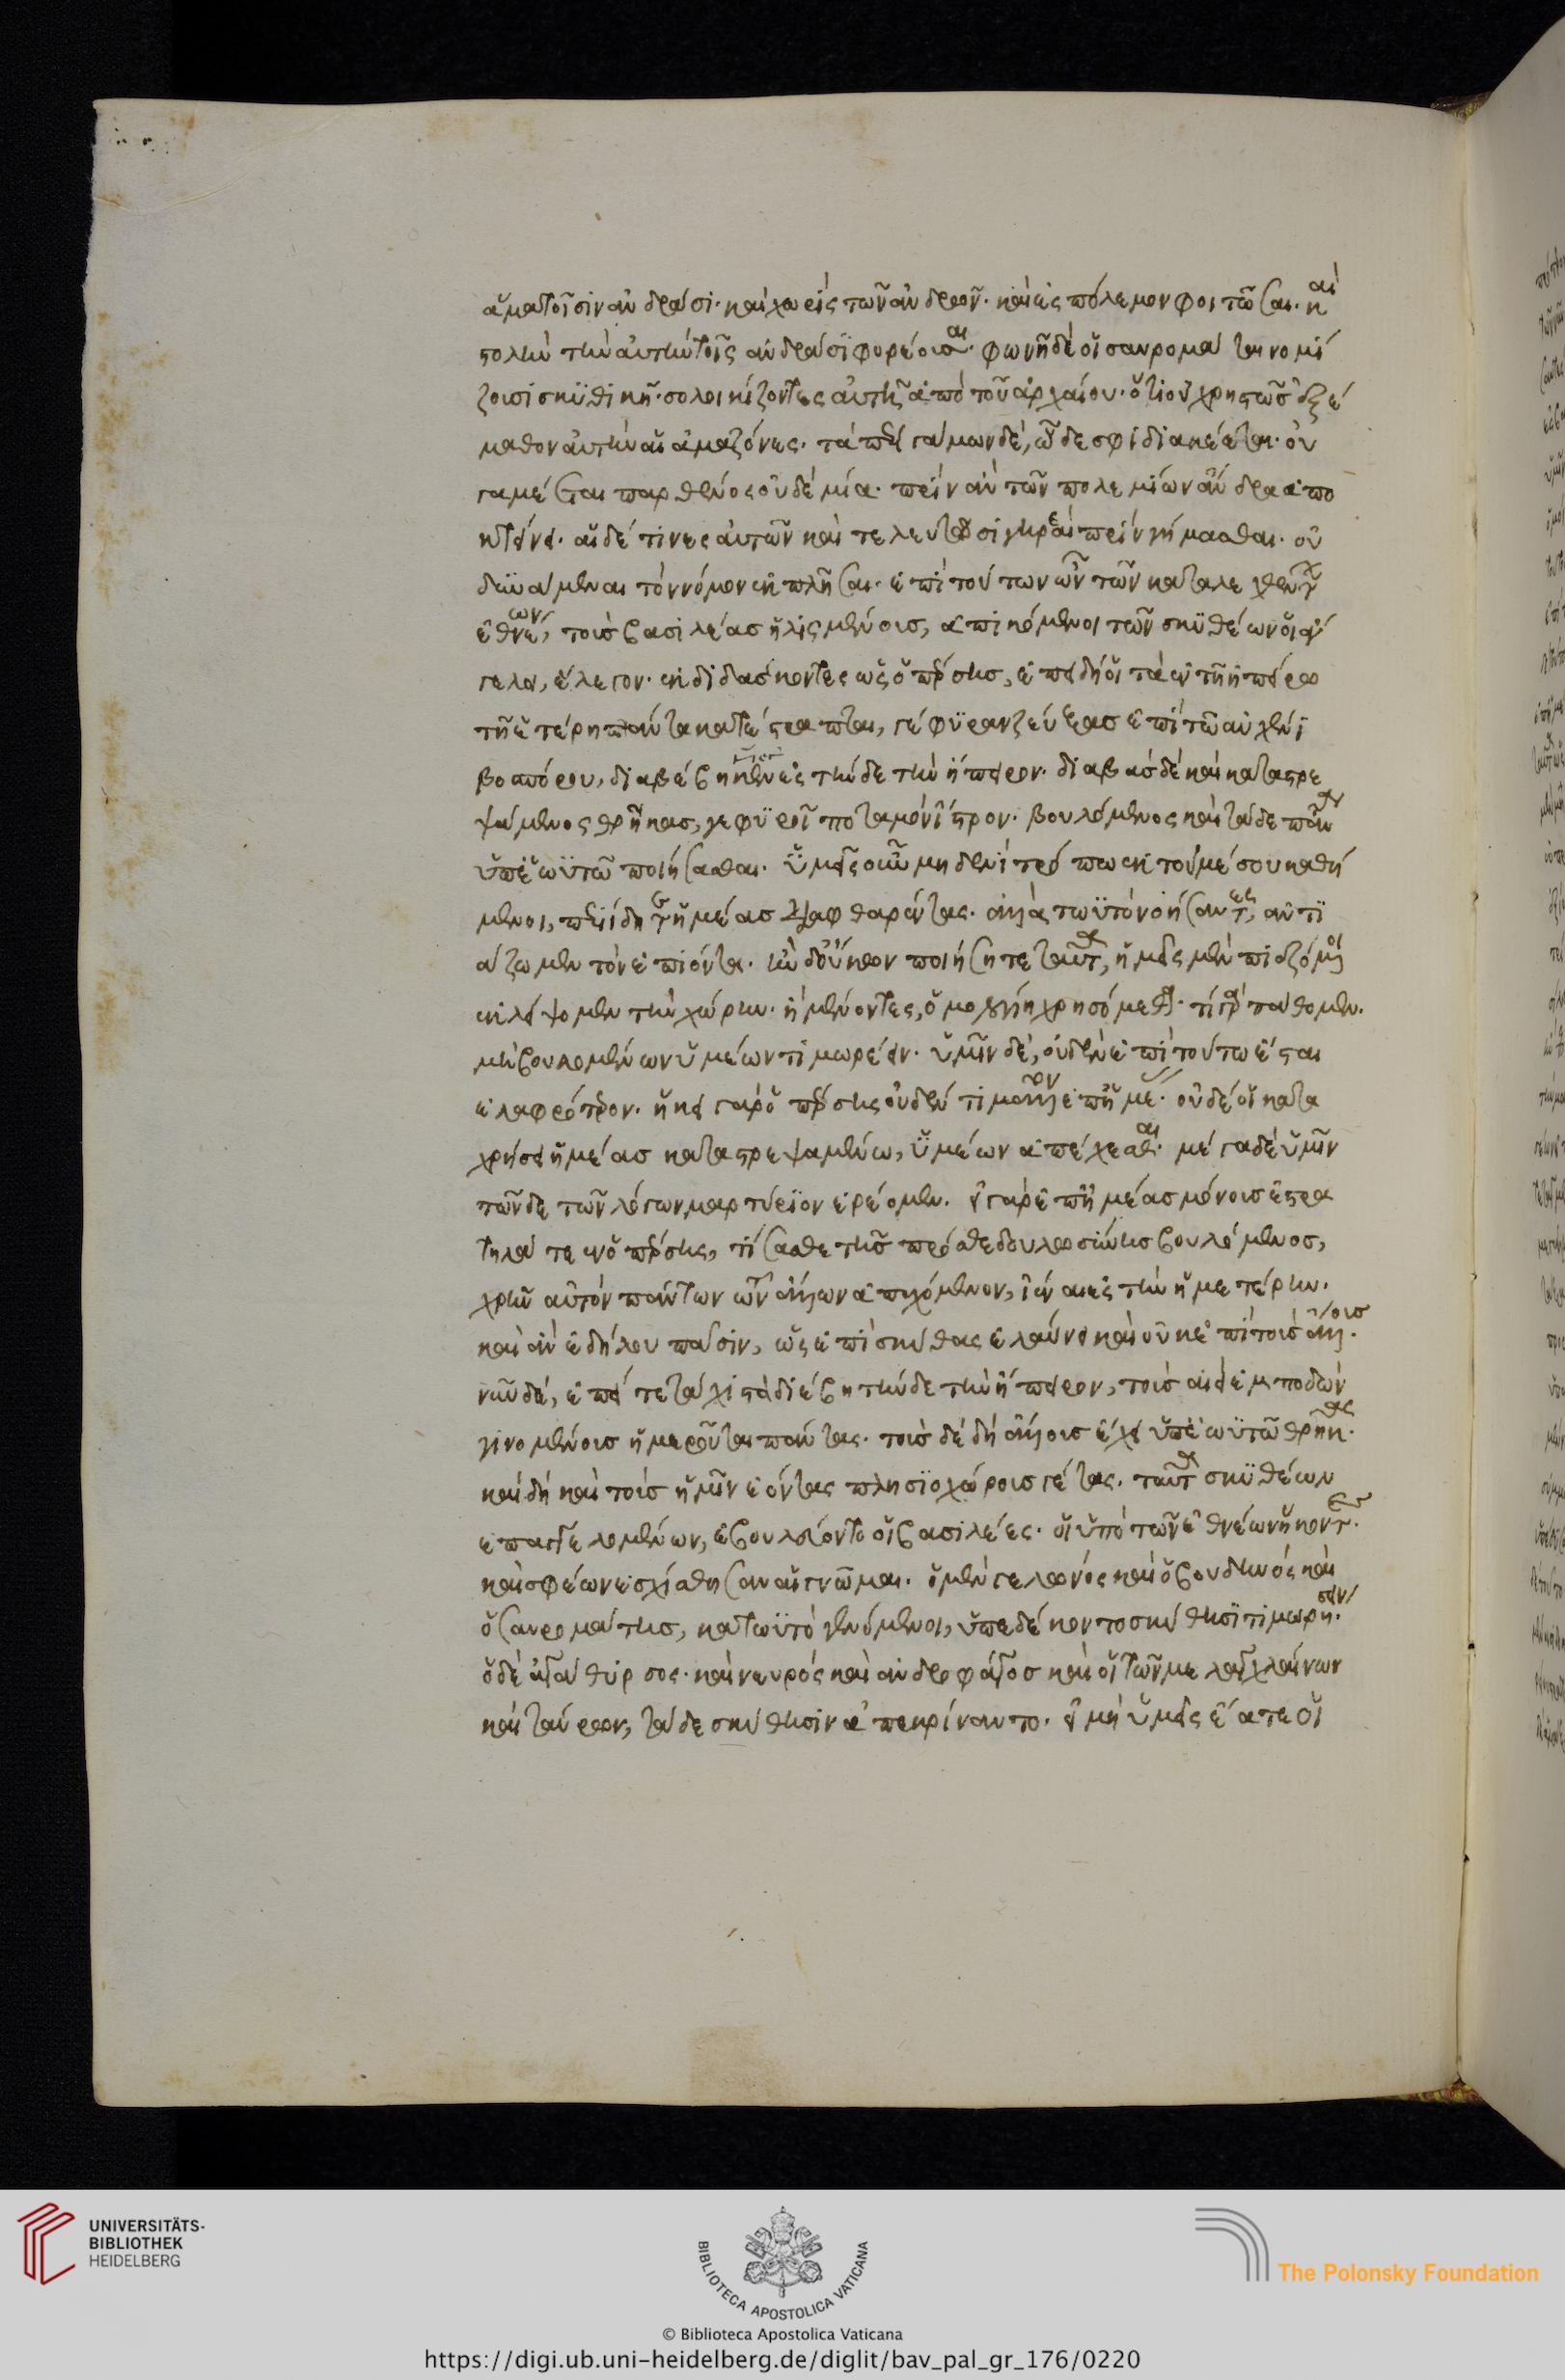 ἅμα τοῖσιν ἀνδράσι· καὶ χωρὶς τῶν ἀνδρῶν· καὶ ἐς πόλεμον φοιτῶσαι· καὶ
στολὴν τὴν αὐτὴν τοῖς ἀνδράσϊ φορέουσαι· φωνῇ δὲ οἱ σαυρομάται νομί
ζουσι σκϋθικῇ· σολοικίζοντες αὐτῇ ἀπὸ τοῦ ἀρχαίου· ὅτι οὐ χρηστῶς ἐξέ
μαθον αὐτὴν αἱ ἀμαζόνες. τὰ περὶ γάμων δέ, ὧδέ σφι διακέεται. οὐ
γαμέεται παρθένος οὐδὲ μία. πρὶν ἂν τῶν πολεμίων ἄνδρα ἀπο
κτείνει. αἱ δέ τινες αὐτῶν καὶ τελευτῶσι γηραιαὶ πρὶν γήμασθαι. οὐ
δυνάμεναι τὸν νόμον ἐκπλῆσαι. ἐπὶ τούτων ὦν τῶν καταλεχθέντων
ἐθνέων, τοὺς βασιλέας ἡλισμένους, ἀπικόμενοι τῶν σκϋθέων οἱ ἄγ
γελοι, ἔλεγον· ἐκδιδάσκοντες ὡς ὁ πέρσης, ἐπειδή οἱ τὰ ἐν τῇ ἠπείρῳ
τῇ ἑτέρῃ πάντα κατέστραπται, γέφϋραν ζεύξας ἐπὶ τῷ αὐχένι
βοσπόρου, διαβέβηκεν ἐς τήνδε τὴν ἤπειρον. διαβὰς δὲ καὶ καταστρε
ψάμενος θρήικας, γεφϋροῖ ποταμὸν ἴστρον. βουλόμενος καὶ τάδε πάντα
ὑπ' ἑωϋτῷ ποιήσασθαι. ὑμεῖς ὦν μηδενὶ τρόπῳ ἐκ τοῦ μέσου καθή
μενοι, περιΐδητε ἡμέας διαφθαρέντας. ἀλλὰ τωϋτὸ νοήσαντες, ἀντϊ
άζωμεν τὸν ἐπιόντα. ἢν δ' οὔκων ποιήσητε ταῦτα, ἡμεῖς μὲν πιεζόμενοι
ἐκλείψομεν τὴν χώρην. ἢ μένοντες, ὁμολογίῃ χρησόμεθα. τί γὰρ πάθομεν.
μὴ βουλομένων ὑμέων τιμωρέειν. ὑμῖν δὲ, οὐδὲν ἐπὶ τούτῳ ἔσται
ἐλαφρότερον. ἥκει γὰρ ὁ πέρσης οὐδέν τι μᾶλλον ἐπ' ἡμέας. οὐδέ οἱ κατα
χρήσει ἡμέας καταστρεψαμένῳ, ὑμέων ἀπέχεσθαι. μέγα δὲ ὑμῖν
τῶνδε τῶν λόγων μαρτύρϊον ἐρέομεν. εἰ γὰρ ἐπ' ἡμέας μόνους ἐστρα
τηλάτεεν ὁ πέρσης, τίσασθαι τῆς πρόσθε δουλοσύνης βουλόμενος,
χρῆν αὐτὸν πάντων τῶν ἄλλων ἀπεχόμενον, ἰέναι ἐς τὴν ἡμετέρην.
καὶ ἂν ἐδήλου πᾶσιν, ὡς ἐπὶ σκύθας ἐλαύνει καὶ οὐκ ἐπὶ τοὺς ἄλλους.
νῦν δέ, ἐπεί τε τάχιστα διέβη τήνδε τὴν ἤπειρον, τοὺς αἰεὶ ἐμποδὼν
γινομένους ἡμεροῦται πάντας. τούς δὲ δὴ ἄλλους ἔχει ὑπ' ἑωϋτῷ θρήικας.
καὶ δὴ καὶ τοὺς ἡμῖν ἐόντας πλησϊοχώρους γέτας. ταῦτα σκϋθέων
ἐπαγγελομένων, ἐβουλεύοντο οἱ βασιλέες. οἱ ὑπὸ τῶν ἐθνέων ἥκοντες.
καὶ σφέων ἐσχίσθησαν αἱ γνῶμαι. ὁ μὲν γελωνὸς καὶ ὁ βουδινὸς καὶ
ὁ σαυρομάτης, κατωϋτὸ γενόμενοι, ὑπεδέκοντο σκύθῃσϊ τιμωρήσειν.
ὁ δὲ ἀγάθυρσος. καὶ νευρὸς καὶ ἀνδροφάγος καὶ οἱ τῶν μελαγχλαίνων
καὶ ταύρων, τάδε σκύθῃσιν ἀπεκρίναντο. εἰ μὴ ὑμεῖς ἔατε οἱ
UNIVERSITÄTS-
BIBLIOTHEK
HEIDELBERG
BIBLIOTECA APOSTOLICA VATICANA
© Biblioteca Apostolica Vaticana
The Polonsky Foundation
https://digi.ub.uni-heidelberg.de/diglit/bav_pal_gr_176/0220